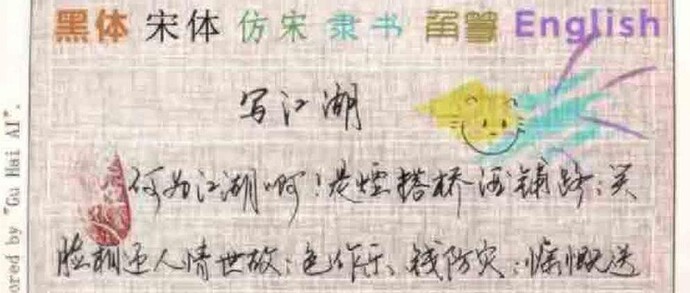 黑体 宋体 仿宋 隶书 English
写江湖
何为江湖啊！是烟搭桥酒铺路；笑
脸相迎人情世故；色作乐、钱防灾；慷慨送
ored by "Gu Hai AI".